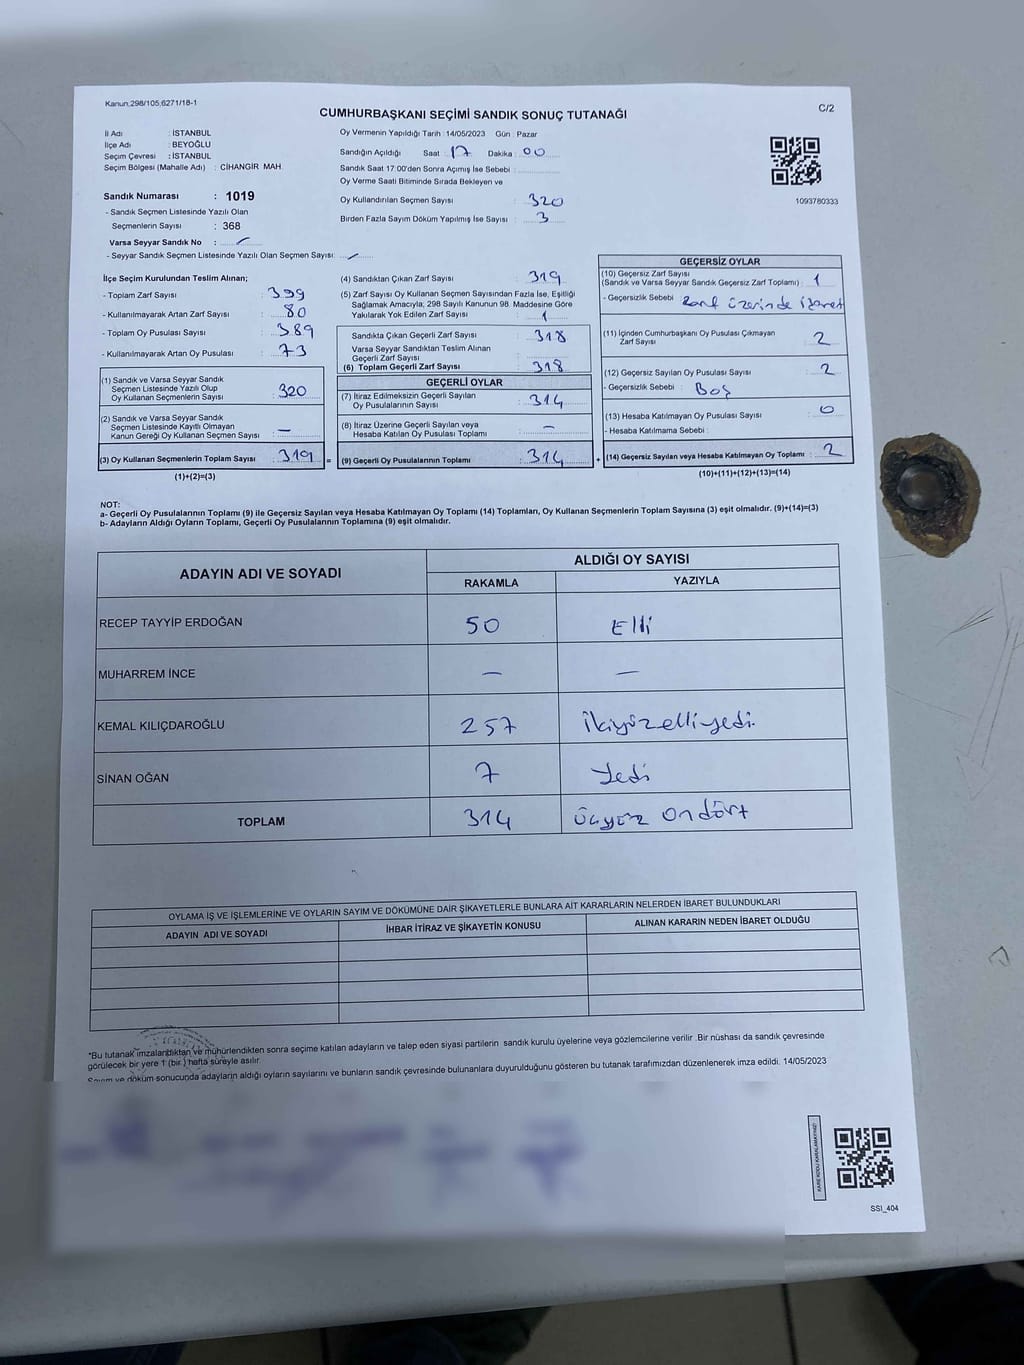 Kanun,298/105,6271/18-1
C/2
CUMHURBAŞKANI SEÇİMİ SANDIK SONUÇ TUTANAĞI
İl Adı : İSTANBUL
İlçe Adı : BEYOĞLU
Seçim Çevresi : İSTANBUL
Seçim Bölgesi (Mahalle Adı) : CİHANGİR MAH.
Sandık Numarası : 1019
- Sandık Seçmen Listesinde Yazılı Olan
Seçmenlerin Sayısı : 368
Varsa Seyyar Sandık No :
- Seyyar Sandık Seçmen Listesinde Yazılı Olan Seçmen Sayısı :
Oy Vermenin Yapıldığı Tarih : 14/05/2023 Gün : Pazar
Sandığın Açıldığı Saat : 17 Dakika : 00
Sandık Saat 17:00'den Sonra Açımış İse Sebebi :
Oy Verme Saati Bitiminde Sırada Bekleyen ve
Oy Kullandırılan Seçmen Sayısı : 320
Birden Fazla Sayım Döküm Yapılmış İse Sayısı : 3
1093780333
İlçe Seçim Kurulundan Teslim Alınan;
- Toplam Zarf Sayısı : 399
- Kullanılmayarak Artan Zarf Sayısı : 80
- Toplam Oy Pusulası Sayısı : 389
- Kullanılmayarak Artan Oy Pusulası : 73
(1) Sandık ve Varsa Seyyar Sandık
Seçmen Listesinde Yazılı Olup
Oy Kullanan Seçmenlerin Sayısı : 320
(2) Sandık ve Varsa Seyyar Sandık
Seçmen Listesinde Kayıtlı Olmayan
Kanun Gereği Oy Kullanan Seçmen Sayısı : –
(3) Oy Kullanan Seçmenlerin Toplam Sayısı : 319 =
(1)+(2)=(3)
(4) Sandıktan Çıkan Zarf Sayısı : 319
(5) Zarf Sayısı Oy Kullanan Seçmen Sayısından Fazla İse, Eşitliği
Sağlamak Amacıyla; 298 Sayılı Kanunun 98. Maddesine Göre
Yakılarak Yok Edilen Zarf Sayısı : 1
Sandıkta Çıkan Geçerli Zarf Sayısı : 318
Varsa Seyyar Sandıktan Teslim Alınan
Geçerli Zarf Sayısı :
(6) Toplam Geçerli Zarf Sayısı : 318
GEÇERLİ OYLAR
(7) İtiraz Edilmeksizin Geçerli Sayılan
Oy Pusulalarının Sayısı : 314
(8) İtiraz Üzerine Geçerli Sayılan veya
Hesaba Katılan Oy Pusulası Toplamı : –
(9) Geçerli Oy Pusulalarının Toplamı : 314 +
GEÇERSİZ OYLAR
(10) Geçersiz Zarf Sayısı
(Sandık ve Varsa Seyyar Sandık Geçersiz Zarf Toplamı) : 1
- Geçersizlik Sebebi : Zarf üzerinde işaret
(11) İçinden Cumhurbaşkanı Oy Pusulası Çıkmayan
Zarf Sayısı : 2
(12) Geçersiz Sayılan Oy Pusulası Sayısı : 2
- Geçersizlik Sebebi : Boş
(13) Hesaba Katılmayan Oy Pusulası Sayısı : 0
- Hesaba Katılmama Sebebi :
(14) Geçersiz Sayılan veya Hesaba Katılmayan Oy Toplamı : 2
(10)+(11)+(12)+(13)=(14)
NOT:
a- Geçerli Oy Pusulalarının Toplamı (9) ile Geçersiz Sayılan veya Hesaba Katılmayan Oy Toplamı (14) Toplamları, Oy Kullanan Seçmenlerin Toplam Sayısına (3) eşit olmalıdır. (9)+(14)=(3)
b- Adayların Aldığı Oyların Toplamı, Geçerli Oy Pusulalarının Toplamına (9) eşit olmalıdır.
ADAYIN ADI VE SOYADI
ALDIĞI OY SAYISI
RAKAMLA YAZIYLA
RECEP TAYYİP ERDOĞAN 50 Elli
MUHARREM İNCE – –
KEMAL KILIÇDAROĞLU 257 ikiyüzelliyedi.
SİNAN OĞAN 7 Yedi
TOPLAM 314 üçyüz ondört
OYLAMA İŞ VE İŞLEMLERİNE VE OYLARIN SAYIM VE DÖKÜMÜNE DAİR ŞİKAYETLERLE BUNLARA AİT KARARLARIN NELERDEN İBARET BULUNDUKLARI
ADAYIN ADI VE SOYADI İHBAR İTİRAZ VE ŞİKAYETİN KONUSU ALINAN KARARIN NEDEN İBARET OLDUĞU
*Bu tutanak imzalandıktan ve mühürlendikten sonra seçime katılan adayların ve talep eden siyasi partilerin sandık kurulu üyelerine veya gözlemcilerine verilir .Bir nüshası da sandık çevresinde
görülecek bir yere 1 (bir ) hafta süreyle asılır.
Sayım ve döküm sonucunda adayların aldığı oyların sayılarını ve bunların sandık çevresinde bulunanlara duyurulduğunu gösteren bu tutanak tarafımızdan düzenlenerek imza edildi. 14/05/2023
KARE KODU KARALAMAYINIZ!
SSI_404